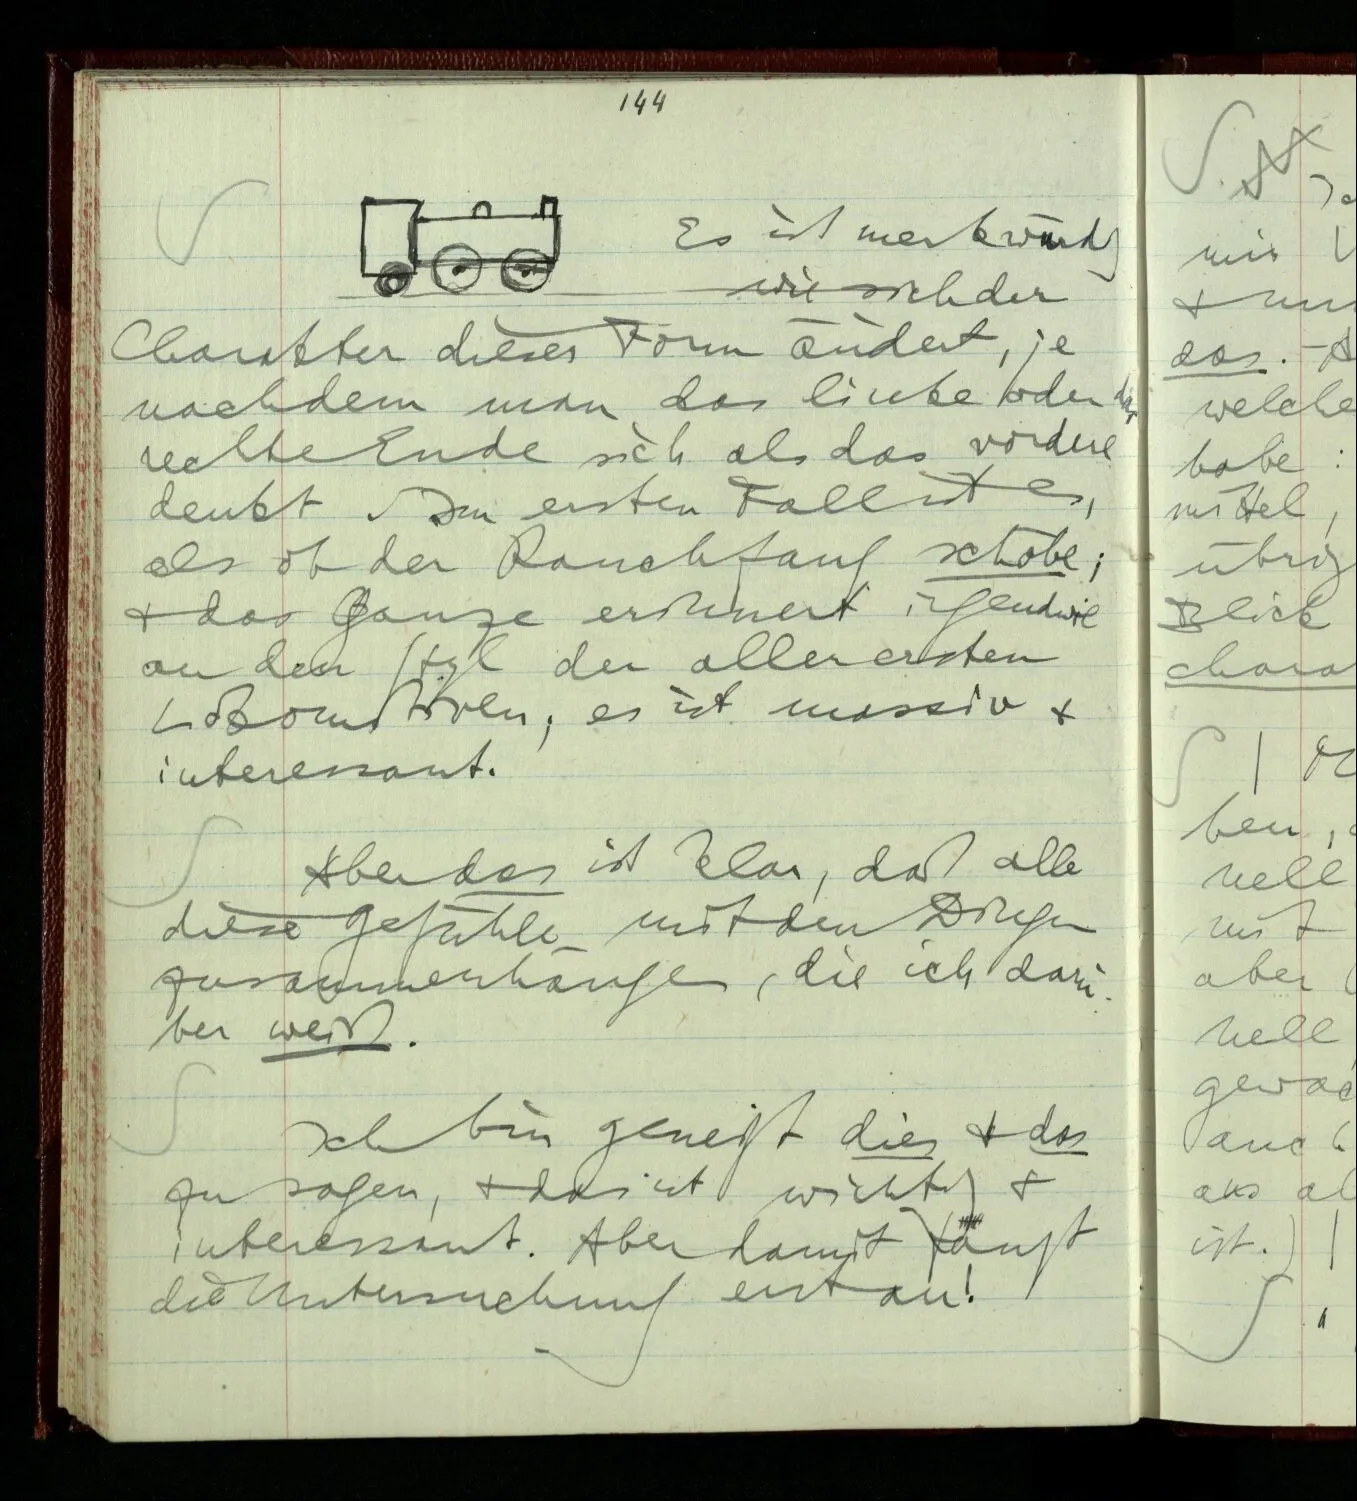 144
Es ist merkwürdig
wie sich der
Charakter dieser Form ändert, je
nachdem man das linke oder das
rechte Ende sich als das vordere
denkt. Im ersten Fall ist es,
als ob der Rauchfang schöbe;
& das Ganze erinnert irgendwie
an den Styl der allerersten
Lokomotiven; es ist massiv &
interessant.
Aber das ist klar, daß alle
diese Gefühle mit den Dingen
zusammenhängen, die ich darü-
ber weiß.
Ich bin geneigt dies & das
zu sagen, & das ist wichtig &
interessant. Aber damit fängt
die Untersuchung erst an!
mir
&
das. –
welche
habe :
mittel,
übrig
Blick
ben,
nell
mit
aber
nell
auch
aus
ist.) |